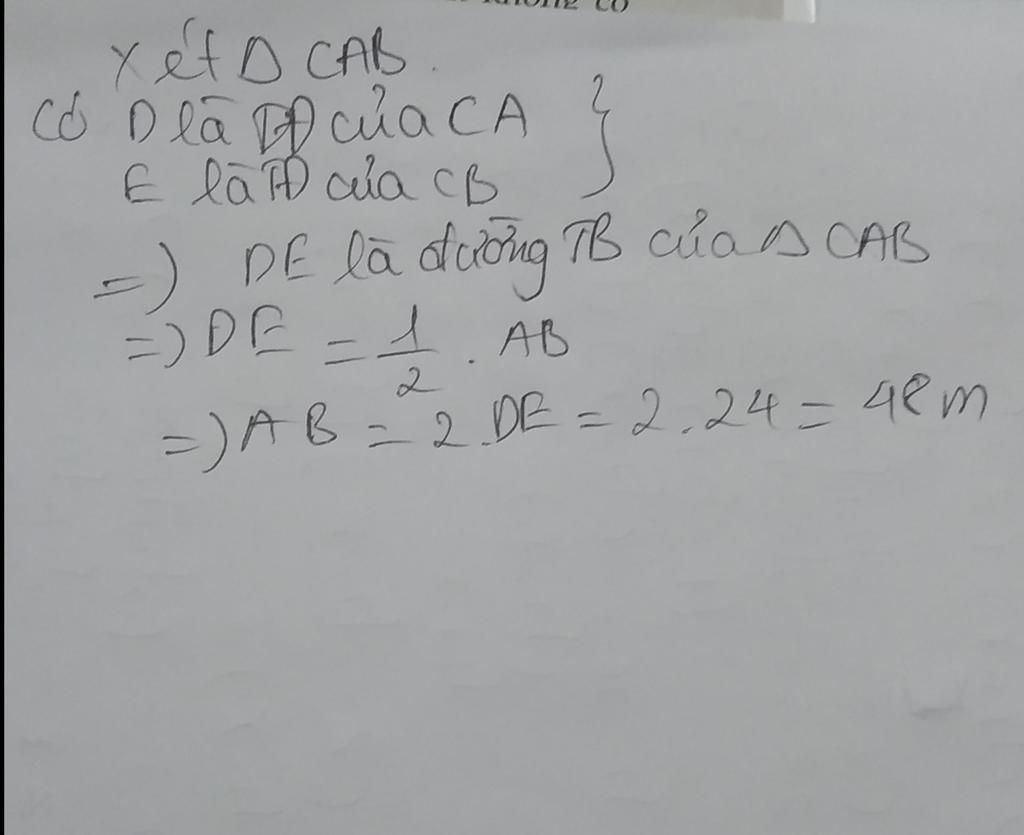 không có
Xét Δ CAB.
Có D là TĐ của CA }
E là TĐ của CB
=) DE là đường TB của Δ CAB
=) DE = 1/2 . AB
=) AB = 2.DE = 2.24 = 48m